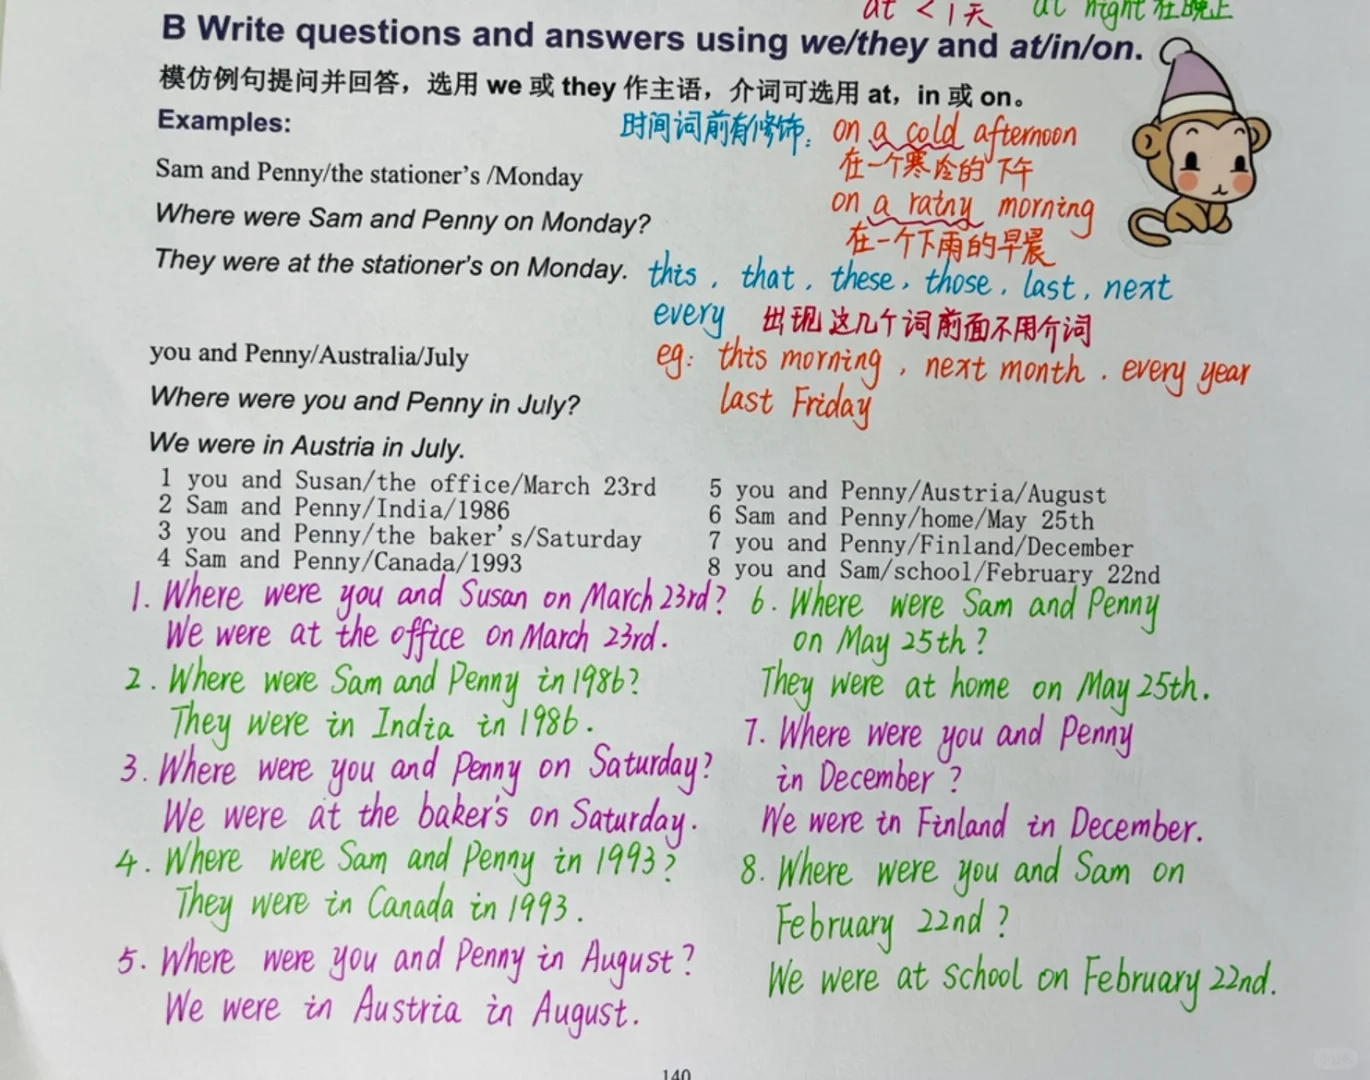 at < 1天 at night 在晚上
B Write questions and answers using we/they and at/in/on.
模仿例句提问并回答，选用 we 或 they 作主语，介词可选用 at，in 或 on。
Examples:
时间词前有修饰: on a cold afternoon
在一个寒冷的下午
Sam and Penny/the stationer's /Monday
on a rainy morning
Where were Sam and Penny on Monday?
在一个下雨的早晨
They were at the stationer's on Monday.
this, that, these, those, last, next
every 出现这几个词前面不用介词
you and Penny/Australia/July
eg: this morning, next month. every year
last Friday
Where were you and Penny in July?
We were in Austria in July.
1 you and Susan/the office/March 23rd
2 Sam and Penny/India/1986
3 you and Penny/the baker's/Saturday
4 Sam and Penny/Canada/1993
5 you and Penny/Austria/August
6 Sam and Penny/home/May 25th
7 you and Penny/Finland/December
8 you and Sam/school/February 22nd
1. Where were you and Susan on March 23rd?
We were at the office on March 23rd.
2. Where were Sam and Penny in 1986?
They were in India in 1986.
3. Where were you and Penny on Saturday?
We were at the baker's on Saturday.
4. Where were Sam and Penny in 1993?
They were in Canada in 1993.
5. Where were you and Penny in August?
We were in Austria in August.
6. Where were Sam and Penny
on May 25th?
They were at home on May 25th.
7. Where were you and Penny
in December?
We were in Finland in December.
8. Where were you and Sam on
February 22nd?
We were at school on February 22nd.
140